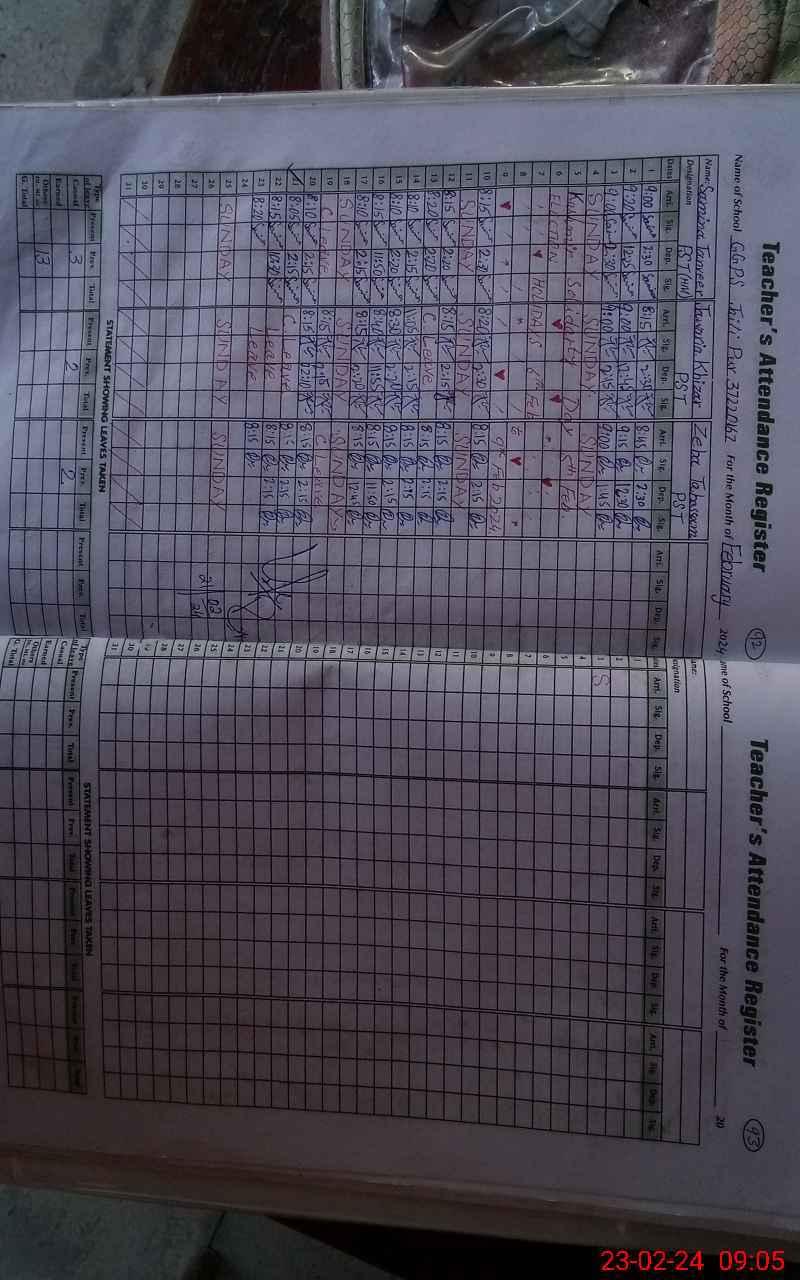 Teacher's Attendance Register
92
Name of School GGPS Jhili Pur 37220162 For the Month of February 2024
Name: Samina Tanveer Tawaria Khizar Zehra Tabassum
Designation PST (HM) PST PST
Dates Arri. Sig. Dep. Sig. Arri. Sig. Dep. Sig. Arri. Sig. Dep. Sig. Arri. Sig. Dep. Sig.
1 9:00 2:30 8:15 2:30 8:45 2:30
2 9:30 12:45 9:00 12:45 9:15 12:30
3 9:00 2:30 9:00 2:15 9:00 11:45
4 SUNDAY SUNDAY SUNDAY
5 Kashmir Solidarity Day 5th Feb.
6 ELECTION HOLIDAYS 6th Feb to 9th Feb 2024
7
8
9
10 8:15 2:30 8:20 2:30 8:15 2:15
11 SUNDAY SUNDAY SUNDAY
12 8:15 2:20 8:15 2:15 8:15 2:15
13 8:20 2:20 C. Leave 8:15 2:15
14 8:10 2:15 11:05 2:15 8:15 2:15
15 8:10 2:20 8:30 2:20 8:15 2:15
16 8:15 11:50 8:10 11:55 8:15 11:50
17 8:10 2:15 8:15 2:20 8:15 12:45
18 SUNDAY SUNDAY SUNDAY
19 C. Leave 8:15 2:15 C. Leave
20 8:10 2:15 8:15 12:10 8:15 2:15
21 8:05 2:15 C. Leave 8:15 2:15
22 8:15 12:30 Leave 8:15 2:15
23 8:20 Leave 8:15
24
25 SUNDAY SUNDAY SUNDAY
26
27
28
29
30
31
21 02 24
STATEMENT SHOWING LEAVES TAKEN
Type of leave Present Prev. Total Present Prev. Total Present Prev. Total Present Prev. Total
Casual 3 2 2
Earned
Others 13
G. Total
Teacher's Attendance Register
93
Name of School For the Month of 20
Name:
Designation
Dates Arri. Sig. Dep. Sig. Arri. Sig. Dep. Sig. Arri. Sig. Dep. Sig. Arri. Sig. Dep. Sig.
1
2
3 S
4
5
6
7
8
9
10
11
12
13
14
15
16
17
18
19
20
21
22
23
24
25
26
27
28
29
30
31
STATEMENT SHOWING LEAVES TAKEN
Type of leave Present Prev. Total Present Prev. Total Present Prev. Total Present Prev. Total
Casual
Earned
Others
G. Total
23-02-24 09:05